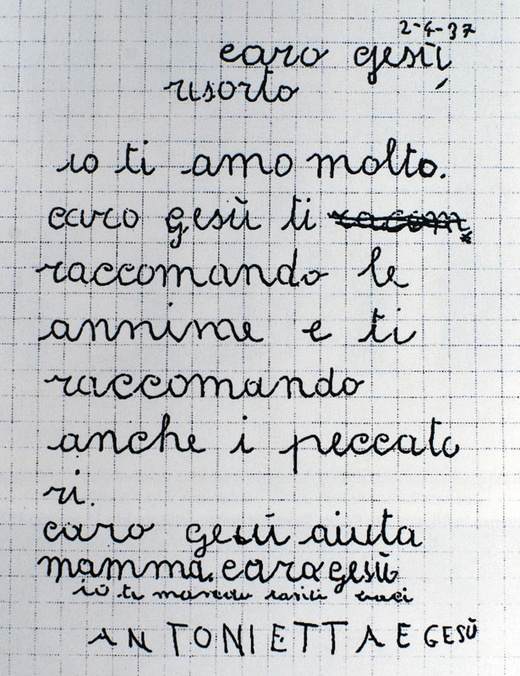 2-4-37
caro gesù,
risorto
io ti amo molto.
caro gesù ti racom
raccomando le
annime e ti
raccomando
anche i peccato
ri.
caro gesù aiuta
mamma. caro gesù
io ti mando tanti baci
ANTONIETTA E GESÙ